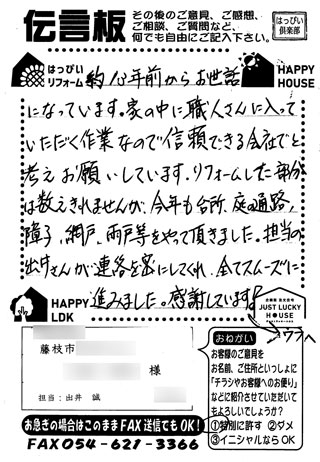 伝言板
その後のご意見、ご感想、
ご相談、ご質問など、
何でも自由にご記入下さい。
はっぴい
倶楽部
はっぴい
リフォーム
HAPPY
HOUSE
約13年前からお世話
になっています。家の中に職人さんに入って
いただく作業なので信頼できる会社でと
考えお願いしています。リフォームした部分
は数えきれませんが、今年も台所、庭の通路、
障子、網戸、雨戸等をやって頂きました。担当の
出井さんが連絡を密にしてくれ、全てスムーズに
進みました。感謝しています。
HAPPY
LDK
JUST LUCKY
HOUSE
ウラへ
藤枝市
様
担当：出井 誠
おねがい
お客様のご意見を
お名前、ご住所といっしょに
「チラシやお客様へのお便り」
などに紹介させていただいて
もよろしいでしょうか？
①特別に許す ②ダメ
③イニシャルならOK
お急ぎの場合はこのままFAX送信でもOK！
FAX054-621-3366